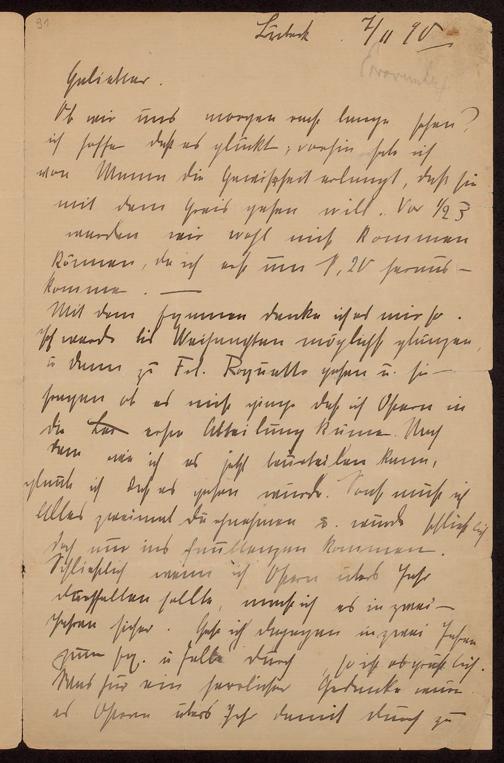 91
Lübeck 7/11 90
Geliebter.
Ob wir uns morgen recht lange sehen?
ich hoffe daß es glückt; vorhin habe ich
von Mama die Gewißheit erlangt, daß sie
mit dem Greis gehen will. Vor 1/2 3
werden wir wohl nicht kommen
können, da ich erst um 1,20 heraus-
komme. —
Mit dem denke ich es mir so.
Ich werde bis Weihnachten möglichst glänzen,
u dann zu Frl. Roquette gehen u. sie
fragen ob es nicht ginge daß ich Ostern in
die erste Abteilung käme. Nach
dem wie ich es jetzt beurteilen kann,
glaube ich daß es gehen würde. Sonst muß ich
Alles zweimal durchnehmen u. würde schließlich
doch nur ins faullenzen kommen.
Schließlich wenn ich Ostern übers Jahr
durchfallen sollte, mach ich es in zwei
Jahren sicher. Gehe ich dagegen in zwei Jahren
zum u falle durch, so ist es
Was für ein herrlicher Gedanke wenn
es Ostern übers Jahr damit durch zu